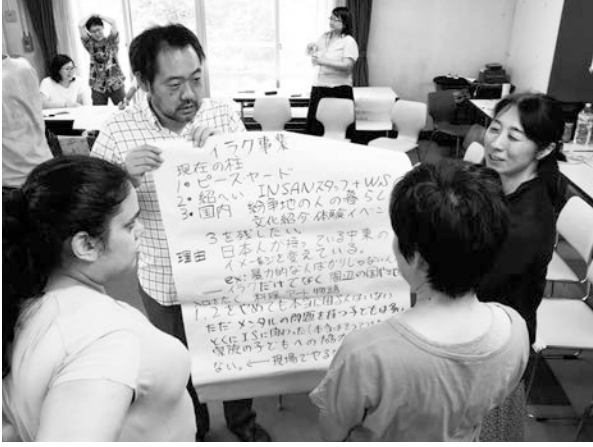 イラク事業
現在の柱
1. ピースヤード
2. 紹へい INSANスタッフ+WS
3. 国内 紛争地の人の暮らし
文化紹介 体験イベン
3を残したい。
理由 日本人が持っている中東の
イメージを変えている。
ex: 暴力的な人ばかりじゃない
イラクだけでなく 周辺の
料理 物語
1,2をやめても本当に困る人はいない
ただ メンタルの問題を持つ子どもは多い
とくにISに関わった
の子どもへの
ない。← 現場でやる